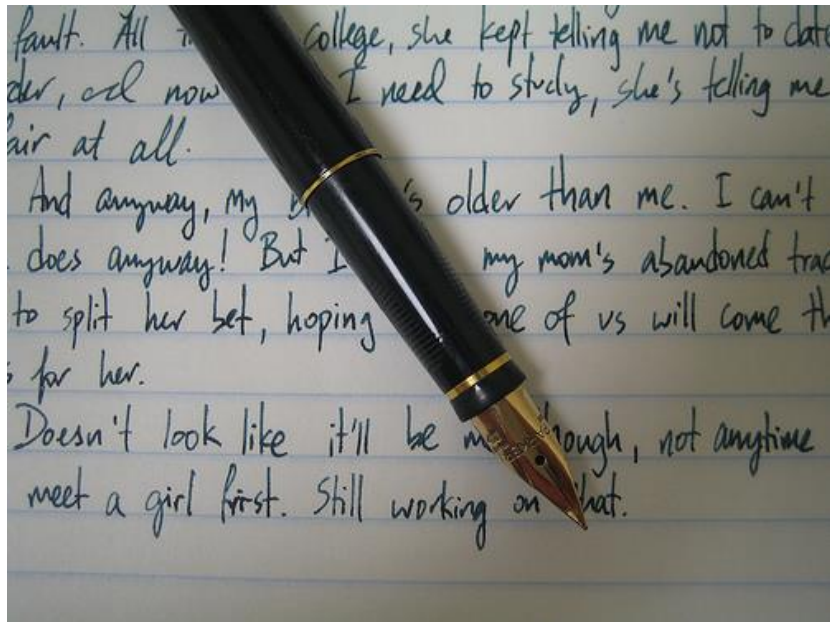 fault. All college, she kept telling me not to date
now I need to study, she's telling me
at all.
And anyway, my older than me. I can't
does anyway! But I my mom's abandoned
to split her bet, hoping one of us will come
for her.
Doesn't look like it'll be though, not anytime
meet a girl first. Still working on that.